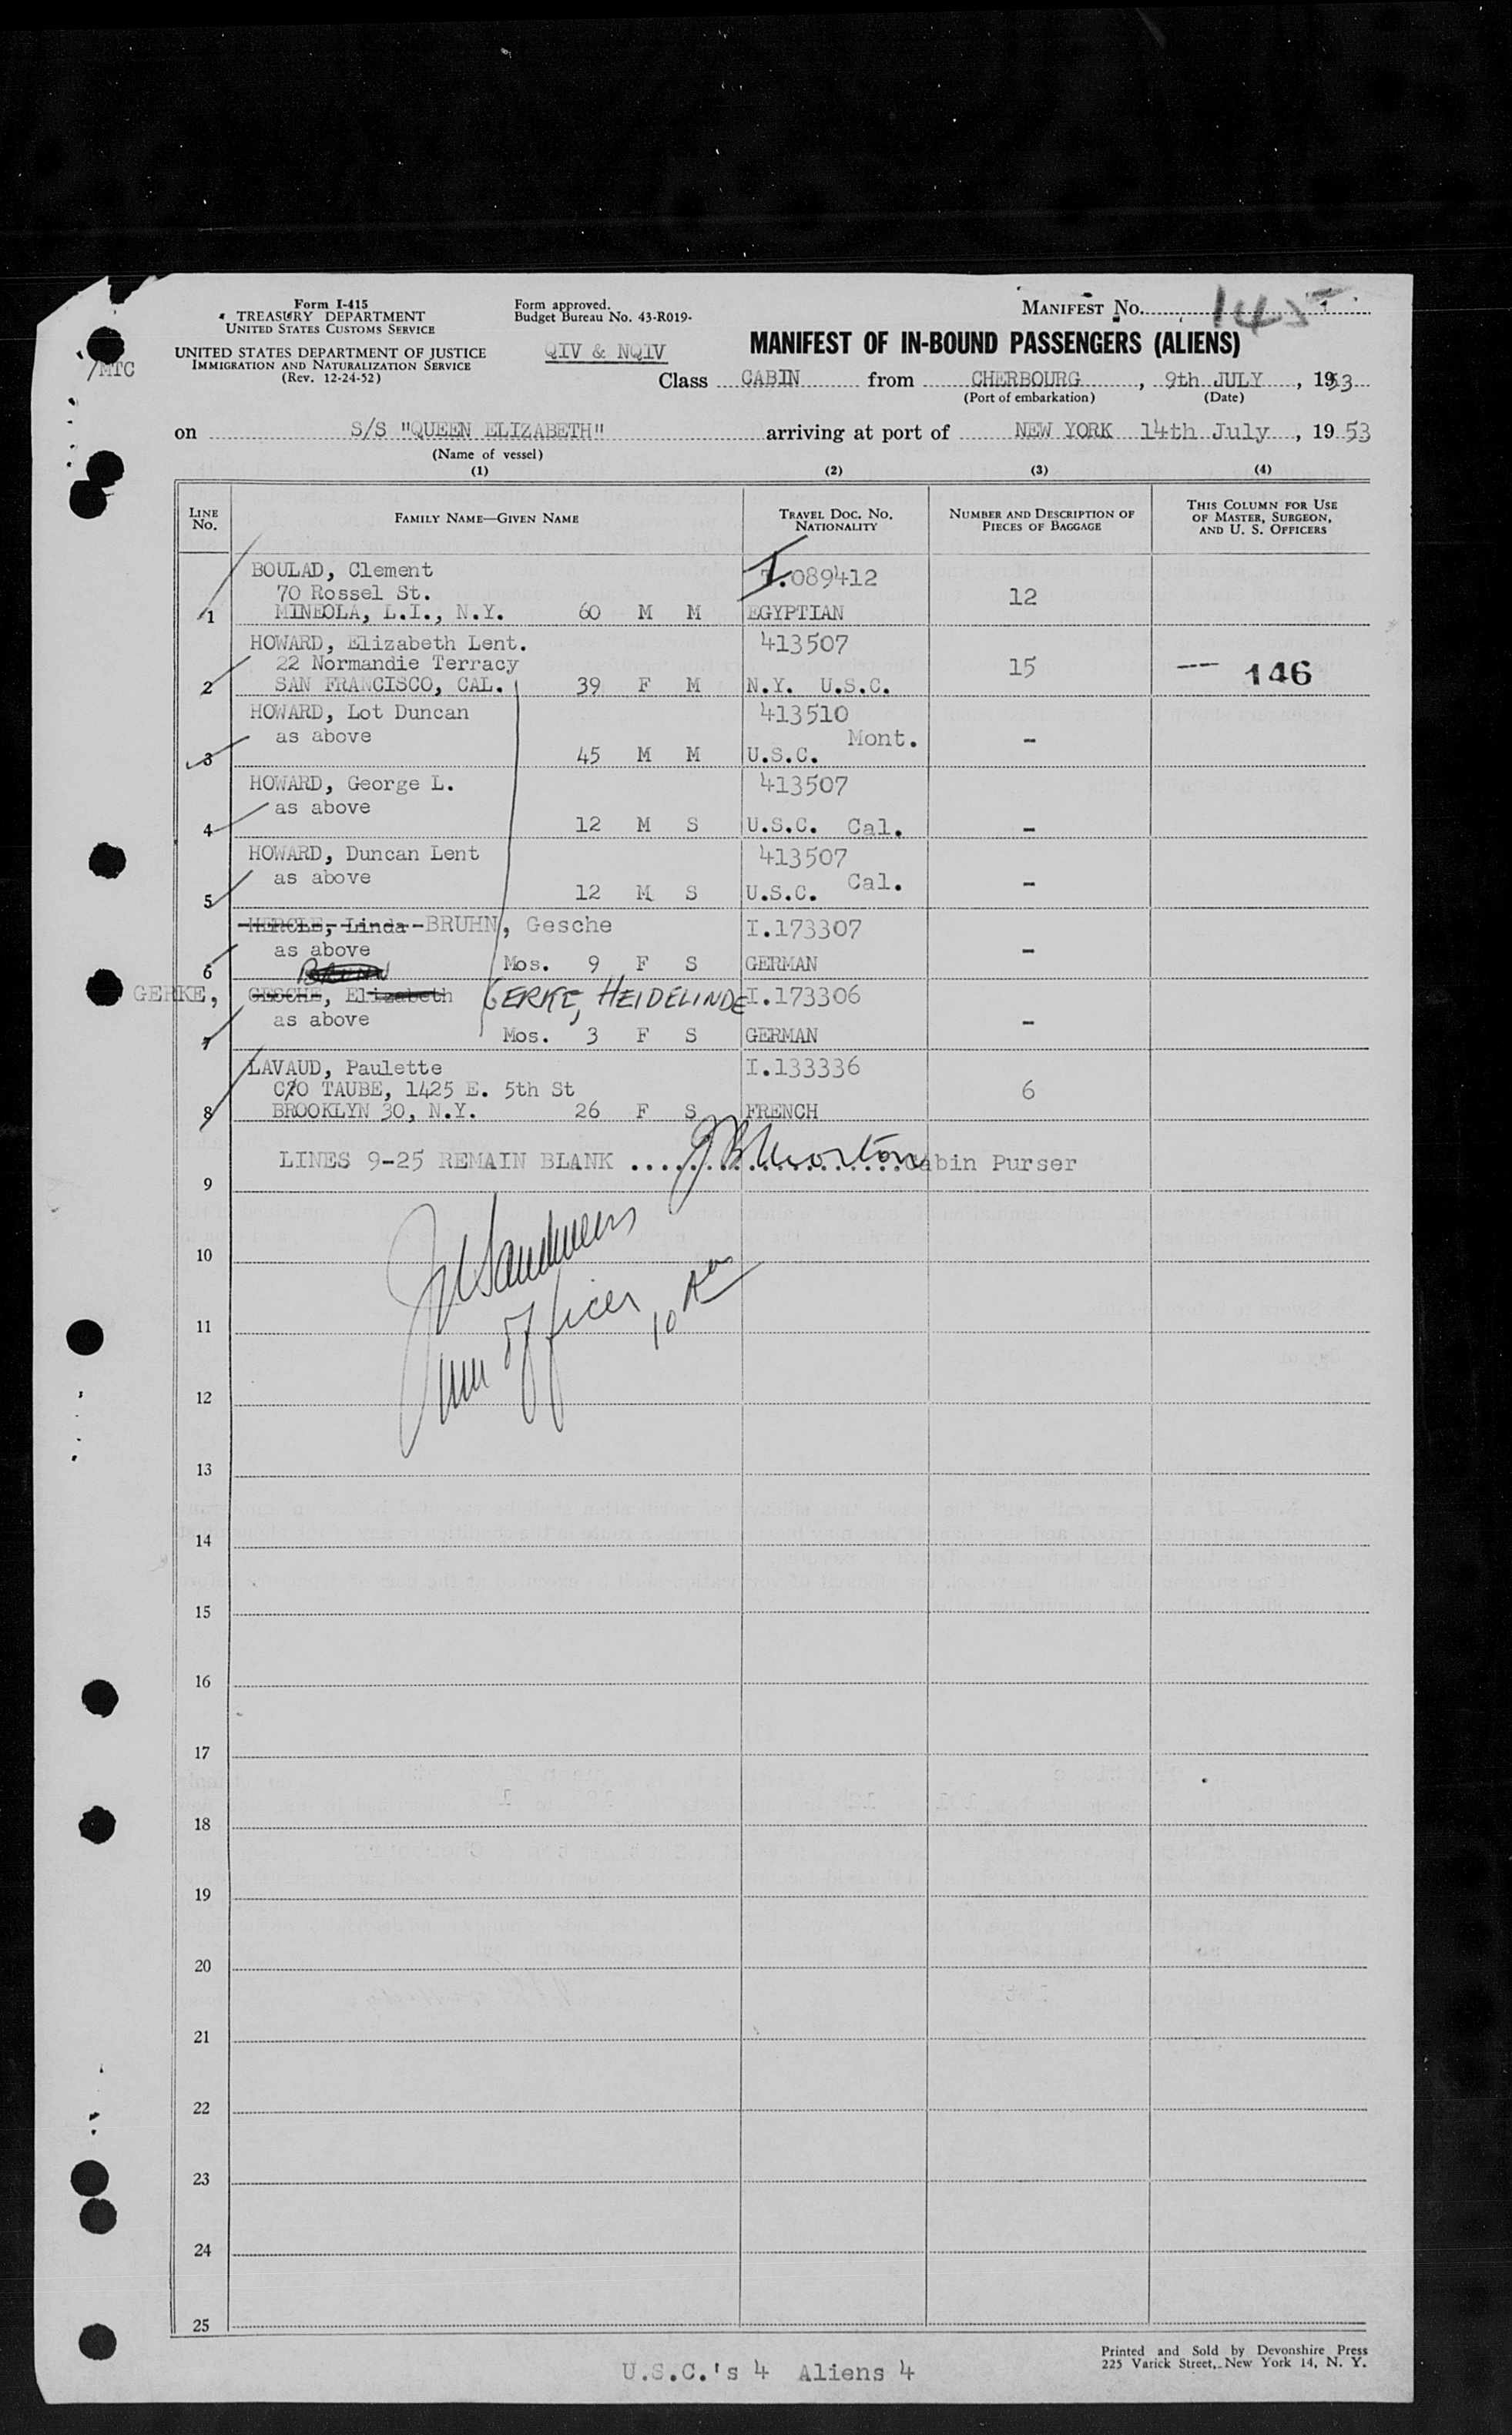 Form I-415
TREASURY DEPARTMENT
UNITED STATES CUSTOMS SERVICE
UNITED STATES DEPARTMENT OF JUSTICE
IMMIGRATION AND NATURALIZATION SERVICE
(Rev. 12-24-52)
/MTC
Form approved.
Budget Bureau No. 43-R019-
QIV & NQIV
MANIFEST NO. 145
MANIFEST OF IN-BOUND PASSENGERS (ALIENS)
Class CABIN from CHERBOURG, 9th JULY, 1953
(Port of embarkation) (Date)
on S/S "QUEEN ELIZABETH" arriving at port of NEW YORK 14th July, 19 53
(Name of vessel)
(1) (2) (3) (4)
LINE NO. FAMILY NAME—GIVEN NAME TRAVEL DOC. NO. NATIONALITY NUMBER AND DESCRIPTION OF PIECES OF BAGGAGE THIS COLUMN FOR USE OF MASTER, SURGEON, AND U. S. OFFICERS
BOULAD, Clement I.089412
70 Rossel St. 12
1 MINEOLA, L.I., N.Y. 60 M M EGYPTIAN
HOWARD, Elizabeth Lent. 413507
22 Normandie Terracy 15 --- 146
2 SAN FRANCISCO, CAL. 39 F M N.Y. U.S.C.
HOWARD, Lot Duncan 413510
as above Mont. -
3 45 M M U.S.C.
HOWARD, George L. 413507
as above
4 12 M S U.S.C. Cal. -
HOWARD, Duncan Lent 413507
as above Cal. -
5 12 M S U.S.C.
HERCLE, Linda-BRUHN, Gesche I.173307
as above -
6 Mos. 9 F S GERMAN
BRUHN
GERKE, GESCHE, Elizabeth GERKE, HEIDELINDE I.173306
as above -
7 Mos. 3 F S GERMAN
LAVAUD, Paulette I.133336
C/O TAUBE, 1425 E. 5th St 6
8 BROOKLYN 30, N.Y. 26 F S FRENCH
LINES 9-25 REMAIN BLANK .................... Cabin Purser
9
10
Imm Officer
11
12
13
14
15
16
17
18
19
20
21
22
23
24
25
U.S.C.'s 4 Aliens 4
Printed and Sold by Devonshire Press
225 Varick Street, New York 14, N. Y.